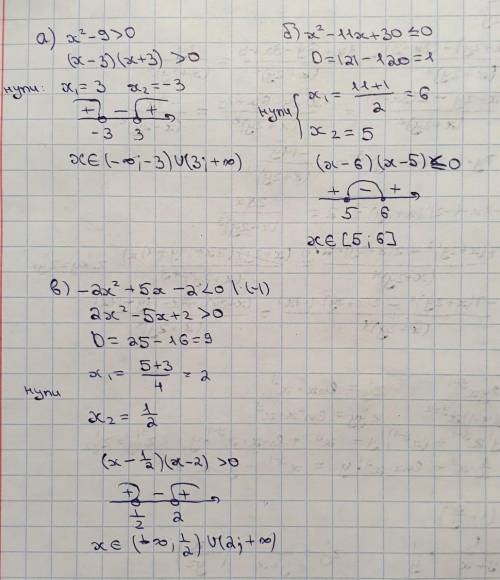 а) x²-9>0
(x-3)(x+3)>0
нули: x₁=3 x₂=-3
+ - +
-3 3
x∈(-∞;-3)∪(3;+∞)
б) x²-11x+30≤0
D=121-120=1
нули { x₁= 11+1/2 = 6
x₂=5
(x-6)(x-5)≤0
+ - +
5 6
x∈[5;6]
в) -2x²+5x-2<0 |·(-1)
2x²-5x+2>0
D=25-16=9
x₁= 5+3/4 =2
нули
x₂= 1/2
(x-1/2)(x-2)>0
+ - +
1/2 2
x∈(-∞,1/2)∪(2;+∞)